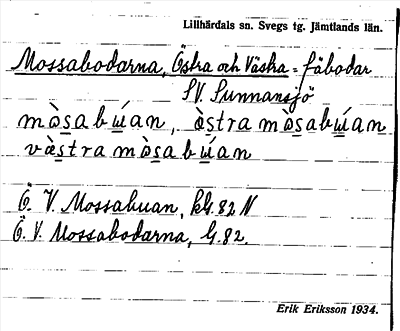 Lillhärdals sn. Svegs tg. Jämtlands län.
Mossabodarna, Östra och Västra = fäbodar
SV. Sunnansjö
mòsabúan, æ̀stra mòsabúan
væ̀stra mòsabúan
Ö. V. Mossabuan, kG. 82 N
Ö. V. Mossabodarna, G. 82.
Erik Eriksson 1934.